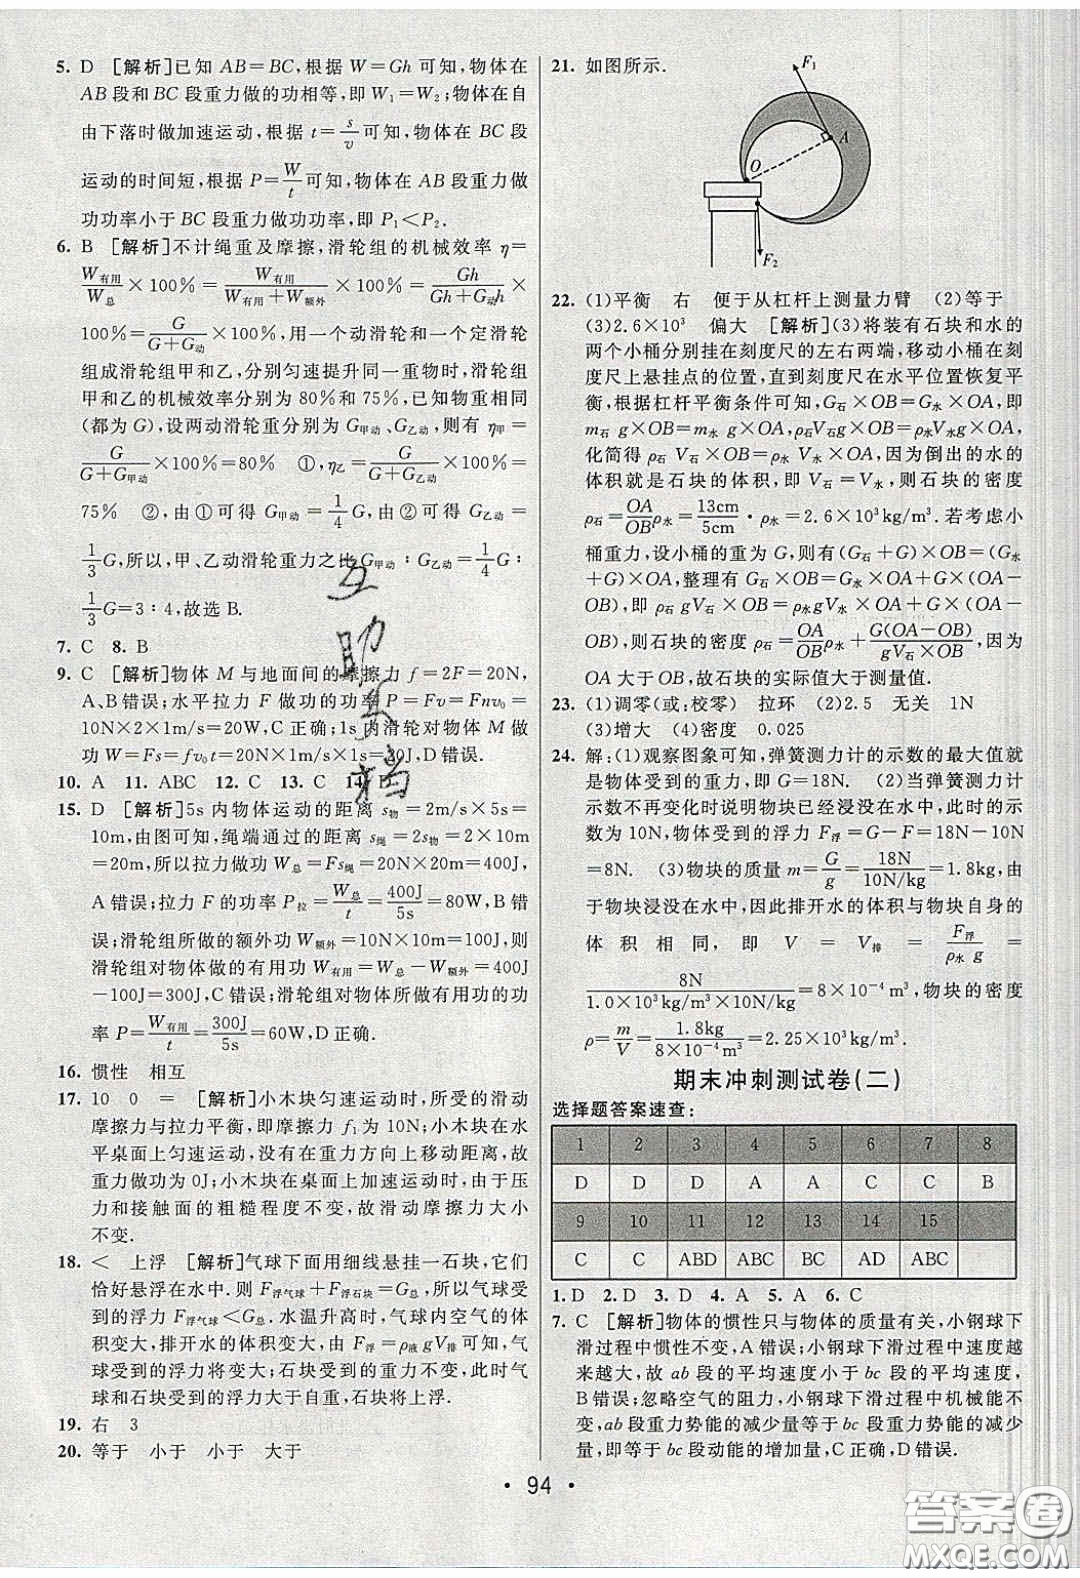 5. D [解析]已知 AB=BC,根据 W=Gh 可知,物体在
AB 段和 BC 段重力做的功相等,即 W₁=W₂;物体在自
由下落时做加速运动,根据 t=s/v 可知,物体在 BC 段
运动的时间短,根据 P=W/t 可知,物体在 AB 段重力做
功功率小于 BC 段重力做功功率,即 P₁<P₂.
6. B [解析]不计绳重及摩擦,滑轮组的机械效率 η=
W有用/W总×100%=W有用/(W有用+W额外)×100%=Gh/(Gh+G动h)×
100%=G/(G+G动),用一个动滑轮和一个定滑轮
组成滑轮组甲和乙,分别匀速提升同一重物时,滑轮组
甲和乙的机械效率分别为 80%和 75%,已知物重相同
(都为 G),设两动滑轮重分别为 G甲动、G乙动,则有 η甲=
G/(G+G甲动)×100%=80% ①,η乙=G/(G+G乙动)×100%=
75% ②,由①可得 G甲动=1/4G,由②可得 G乙动=
1/3G,所以,甲、乙动滑轮重力之比 G甲动∶G乙动=1/4G∶
1/3G=3∶4,故选 B.
7. C 8. B
9. C [解析]物体 M 与地面间的摩擦力 f=2F=20N,
A、B错误;水平拉力 F 做功的功率 P=Fv=Fnv₀=
10N×2×1m/s=20W,C 正确;1s 内滑轮对物体 M 做
功 W=Fs=fv₀t=20N×1m/s×1s=20J,D 错误.
10. A 11. ABC 12. C 13. C 14. B
15. D [解析]5s 内物体运动的距离 s物=2m/s×5s=
10m,由图可知,绳端通过的距离 s绳=2s物=2×10m
=20m,所以拉力做功 W总=Fs绳=20N×20m=400J,
A 错误;拉力 F 的功率 P拉=W总/t=400J/5s=80W,B 错
误;滑轮组所做的额外功 W额外=10N×10m=100J,则
滑轮组对物体做的有用功 W有用=W总-W额外=400J
-100J=300J,C 错误;滑轮组对物体所做有用功的功
率 P=W有用/t=300J/5s=60W,D 正确.
16. 惯性 相互
17. 10 0 = [解析]小木块匀速运动时,所受的滑动
摩擦力与拉力平衡,即摩擦力 f₁为 10N;小木块在水
平桌面上匀速运动,没有在重力方向上移动距离,故
重力做功为 0J;小木块在桌面上加速运动时,由于压
力和接触面的粗糙程度不变,故滑动摩擦力大小
不变.
18. < 上浮 [解析]气球下面用细线悬挂一石块,它们
恰好悬浮在水中.则 F浮气球+F浮石块=G总,所以气球受
到的浮力 F浮气球<G总.水温升高时,气球内空气的体
积变大,排开水的体积变大,由 F浮=ρ液gV排可知,气
球受到的浮力将变大;石块受到的重力不变,此时气
球和石块受到的浮力大于自重,石块将上浮.
19. 右 3
20. 等于 小于 小于 大于
21. 如图所示.
F₁
A
O
F₂
22. (1)平衡 右 便于从杠杆上测量力臂 (2)等于
(3)2.6×10³ 偏大 [解析](3)将装有石块和水的
两个小桶分别挂在刻度尺的左右两端,移动小桶在刻
度尺上悬挂点的位置,直到刻度尺在水平位置恢复平
衡,根据杠杆平衡条件可知,G石×OB=G水×OA,即
m石 g×OB=m水 g×OA,ρ石V石g×OB=ρ水V水g×OA,
化简得 ρ石 V石×OB=ρ水 V水×OA,因为倒出的水的
体积就是石块的体积,即 V石=V水,则石块的密度
ρ石=OA/OB ρ水=13cm/5cm·ρ水=2.6×10³kg/m³.若考虑小
桶重力,设小桶的重为 G,则有(G石+G)×OB=(G水
+G)×OA,整理有 G石×OB=G水×OA+G×(OA-
OB),即 ρ石 gV石×OB=ρ水gV水×OA+G×(OA-
OB),则石块的密度 ρ石=OA/OB ρ水+G(OA-OB)/(gV石×OB),因为
OA 大于 OB,故石块的实际值大于测量值.
23. (1)调零(或:校零) 拉环 (2)2.5 无关 1N
(3)增大 (4)密度 0.025
24. 解:(1)观察图象可知,弹簧测力计的示数的最大值就
是物体受到的重力,即 G=18N. (2)当弹簧测力计
示数不再变化时说明物块已经浸没在水中,此时的示
数为 10N,物体受到的浮力 F浮=G-F=18N-10N
=8N. (3)物块的质量 m=G/g=18N/10N/kg=1.8kg,由
于物块浸没在水中,因此排开水的体积与物块自身的
体积相同,即 V=V排=F浮/ρ水 g=
8N/(1.0×10³kg/m³×10N/kg)=8×10⁻⁴m³,物块的密度
ρ=m/V=1.8kg/8×10⁻⁴m³=2.25×10³kg/m³.
期末冲刺测试卷(二)
选择题答案速查:
1 2 3 4 5 6 7 8
D D D A A C C B
9 10 11 12 13 14 15
C C ABD ABC BC AD ABC
1. D 2. D 3. D 4. A 5. A 6. C
7. C [解析]物体的惯性只与物体的质量有关,小钢球下
滑过程中惯性不变,A 错误;小钢球下滑过程中速度越
来越大,故 ab 段的平均速度小于 bc 段的平均速度,
B 错误;忽略空气的阻力,小钢球下滑过程中机械能不
变,ab 段重力势能的减少量等于 bc 段重力势能的减少
量,即等于 bc 段动能的增加量,C 正确,D 错误.
· 94 ·
互
助
文
档
答案圈
MXQE.COM